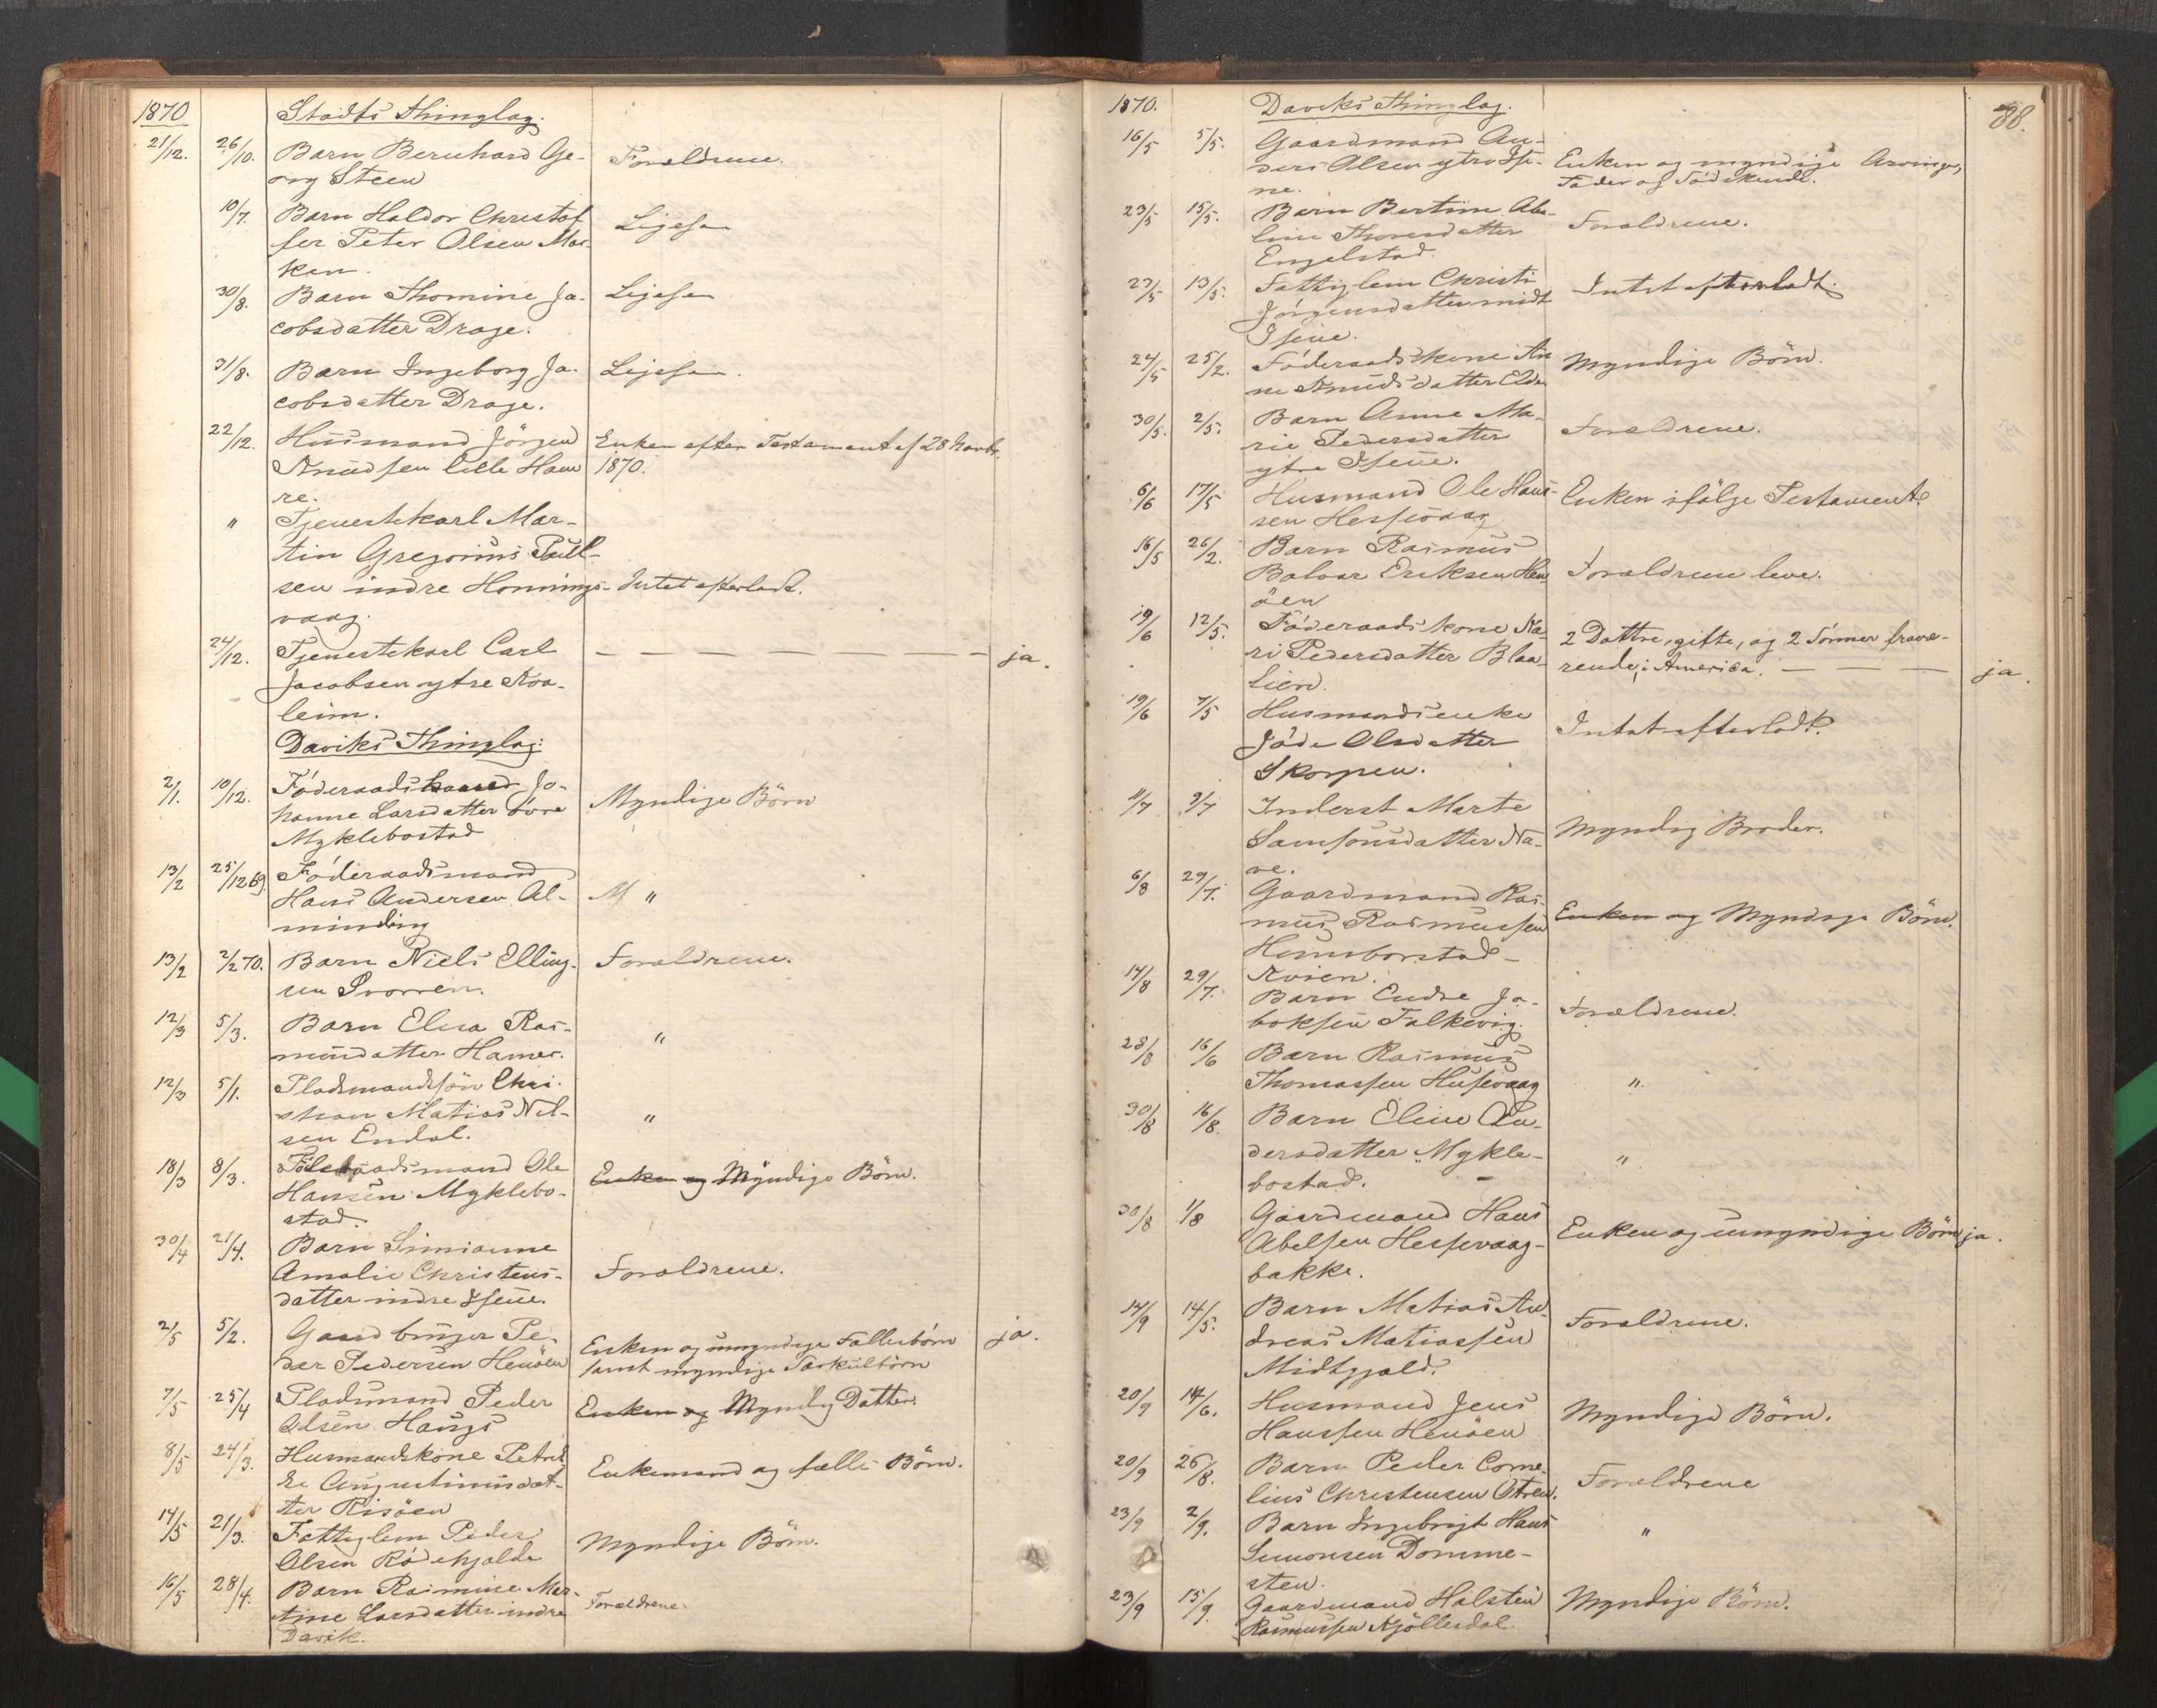 1870
Stadts Thinglag.
21/12. 26/10. Barn Bernhard Ge-
org Steen
Forældrene.
10/7. Barn Haldor Christof
fer Peter Olsen Mar-
ken.
Ligesaa
30/8. Barn Thomine Ja-
cobsdatter Drage.
Ligesaa
31/8. Barn Ingeborg Ja-
cobsdatter Drage.
Ligesaa.
22/12. Huusmand Jörgen
Knudsen lille Ham
re.
Enken efter Testament af 28 Novbr.
1870.
" Tjenestekarl Mar-
tin Gregorius Paul-
sen indre Honnings-
vaag.
Intet efterladt.
24/12. Tjenestekarl Carl
Jacobsen ytre Koa-
leim.
— — — — — — — — ja.
Daviks Thinglag:
2/1. 10/12. Föderaads Jo-
hanne Larsdatter övre
Myklebostad
Myndige Börn
13/2 25/12 69. Föderaadsmand
Hans Andersen Al-
minding
M "
13/2 2/2 70. Barn Niels Elling-
sen Svorren.
Forældrene.
12/3 5/3. Barn Elisa Ras-
musdatter Hamre.
"
12/3 5/1. Pladsmandssön Chri-
stian Matias Nil-
sen Endal.
"
18/3 8/3. Föderaadsmand Ole
Hansen Myklebo-
stad.
Enken og Myndige Börn.
30/4 21/4. Barn Simianne
Amalie Christens-
datter indre Isene.
Forældrene.
2/5 5/2. Gaardbruger Pe-
der Pedersen Henöen
Enken og umyndige Fællesbörn
samt myndige Særkulbörn
ja.
7/5 25/4 Pladsmand Peder
Olsen Haugs
Enken og Myndig Datter.
8/5 24/3. Husmandskone Petrik
ke Augustinusdat-
ter Risöen
Enkemand og fælles Börn.
14/5 21/3. Fattiglem Peder
Olsen Rödekjolde
Myndige Börn.
16/5 28/4. Barn Rasmine Mar-
tine Larsdatter indre
Davik.
Forældrene.
88.
1870.
Daviks Thinglag.
16/5 5/5. Gaardmand An-
ders Olsen ytre Ise-
ne.
Enken og myndige Arvinger,
Fader og Södskende.
23/5 15/5. Barn Bertine Abe-
line Thoresdatter
Engelstad.
Forældrene.
23/5 13/5. Fattiglem Christi
Jörgensdatter midt
Isene.
Intet efterladt.
24/5 25/2. Föderaadskone An
ne Knudsdatter Elde
Myndige Börn.
30/5. 2/5. Barn Anne Ma-
rie Pedersdatter
ytre Isene.
Forældrene.
6/6 17/5 Husmand Ole Hans-
sen Hessevaag
Enken ifölge Testament.
16/5 26/2. Barn Rasmus
Balvar Eriksen Hen
öen
Forældrene leve.
19/6 12/5. Föderaadskone Ka-
ri Pedersdatter Blaa-
lien.
2 Döttre, gifte, og 2 Sönner fravæ-
rende i America. — — — ja.
19/6 7/5 Husmandsenke
Jöde Olsdatter
Skorpen.
Intet efterladt.
11/7 9/7 Inderst Marte
Samsonsdatter Na-
ve.
Myndig Broder.
6/8 29/7. Gaardmand Ras-
mus Rasmussen
Hunsborstad-
Kvien.
Enken og Myndige Börn.
14/8 29/7. Barn Endre Ja-
koksen Falkevig.
Forældrene.
28/8 16/6 Barn Rasmus
Thomassen Husevaag
".
30/8 16/8. Barn Eline An-
dersdatter Mykle-
bostad.
"
30/8 1/8 Gaardmand Hans
Abelsen Hessevaag-
bakke.
Enken og umyndige Börn ja.
14/9 14/5. Barn Matias An-
dreas Matiassen
Midtgjald.
Forældrene.
20/9 14/6. Husmand Jens
Hanssen Henöen
Myndige Börn.
20/9 26/8. Barn Peder Corne-
lius Christensen Otren.
Forældrene
23/9 2/9. Barn Ingebrigt Hans
Simonsen Domme-
sten.
"
23/9 15/9. Gaardmand Halsten
Rasmussen Kjöllesdal.
Myndige Börn.